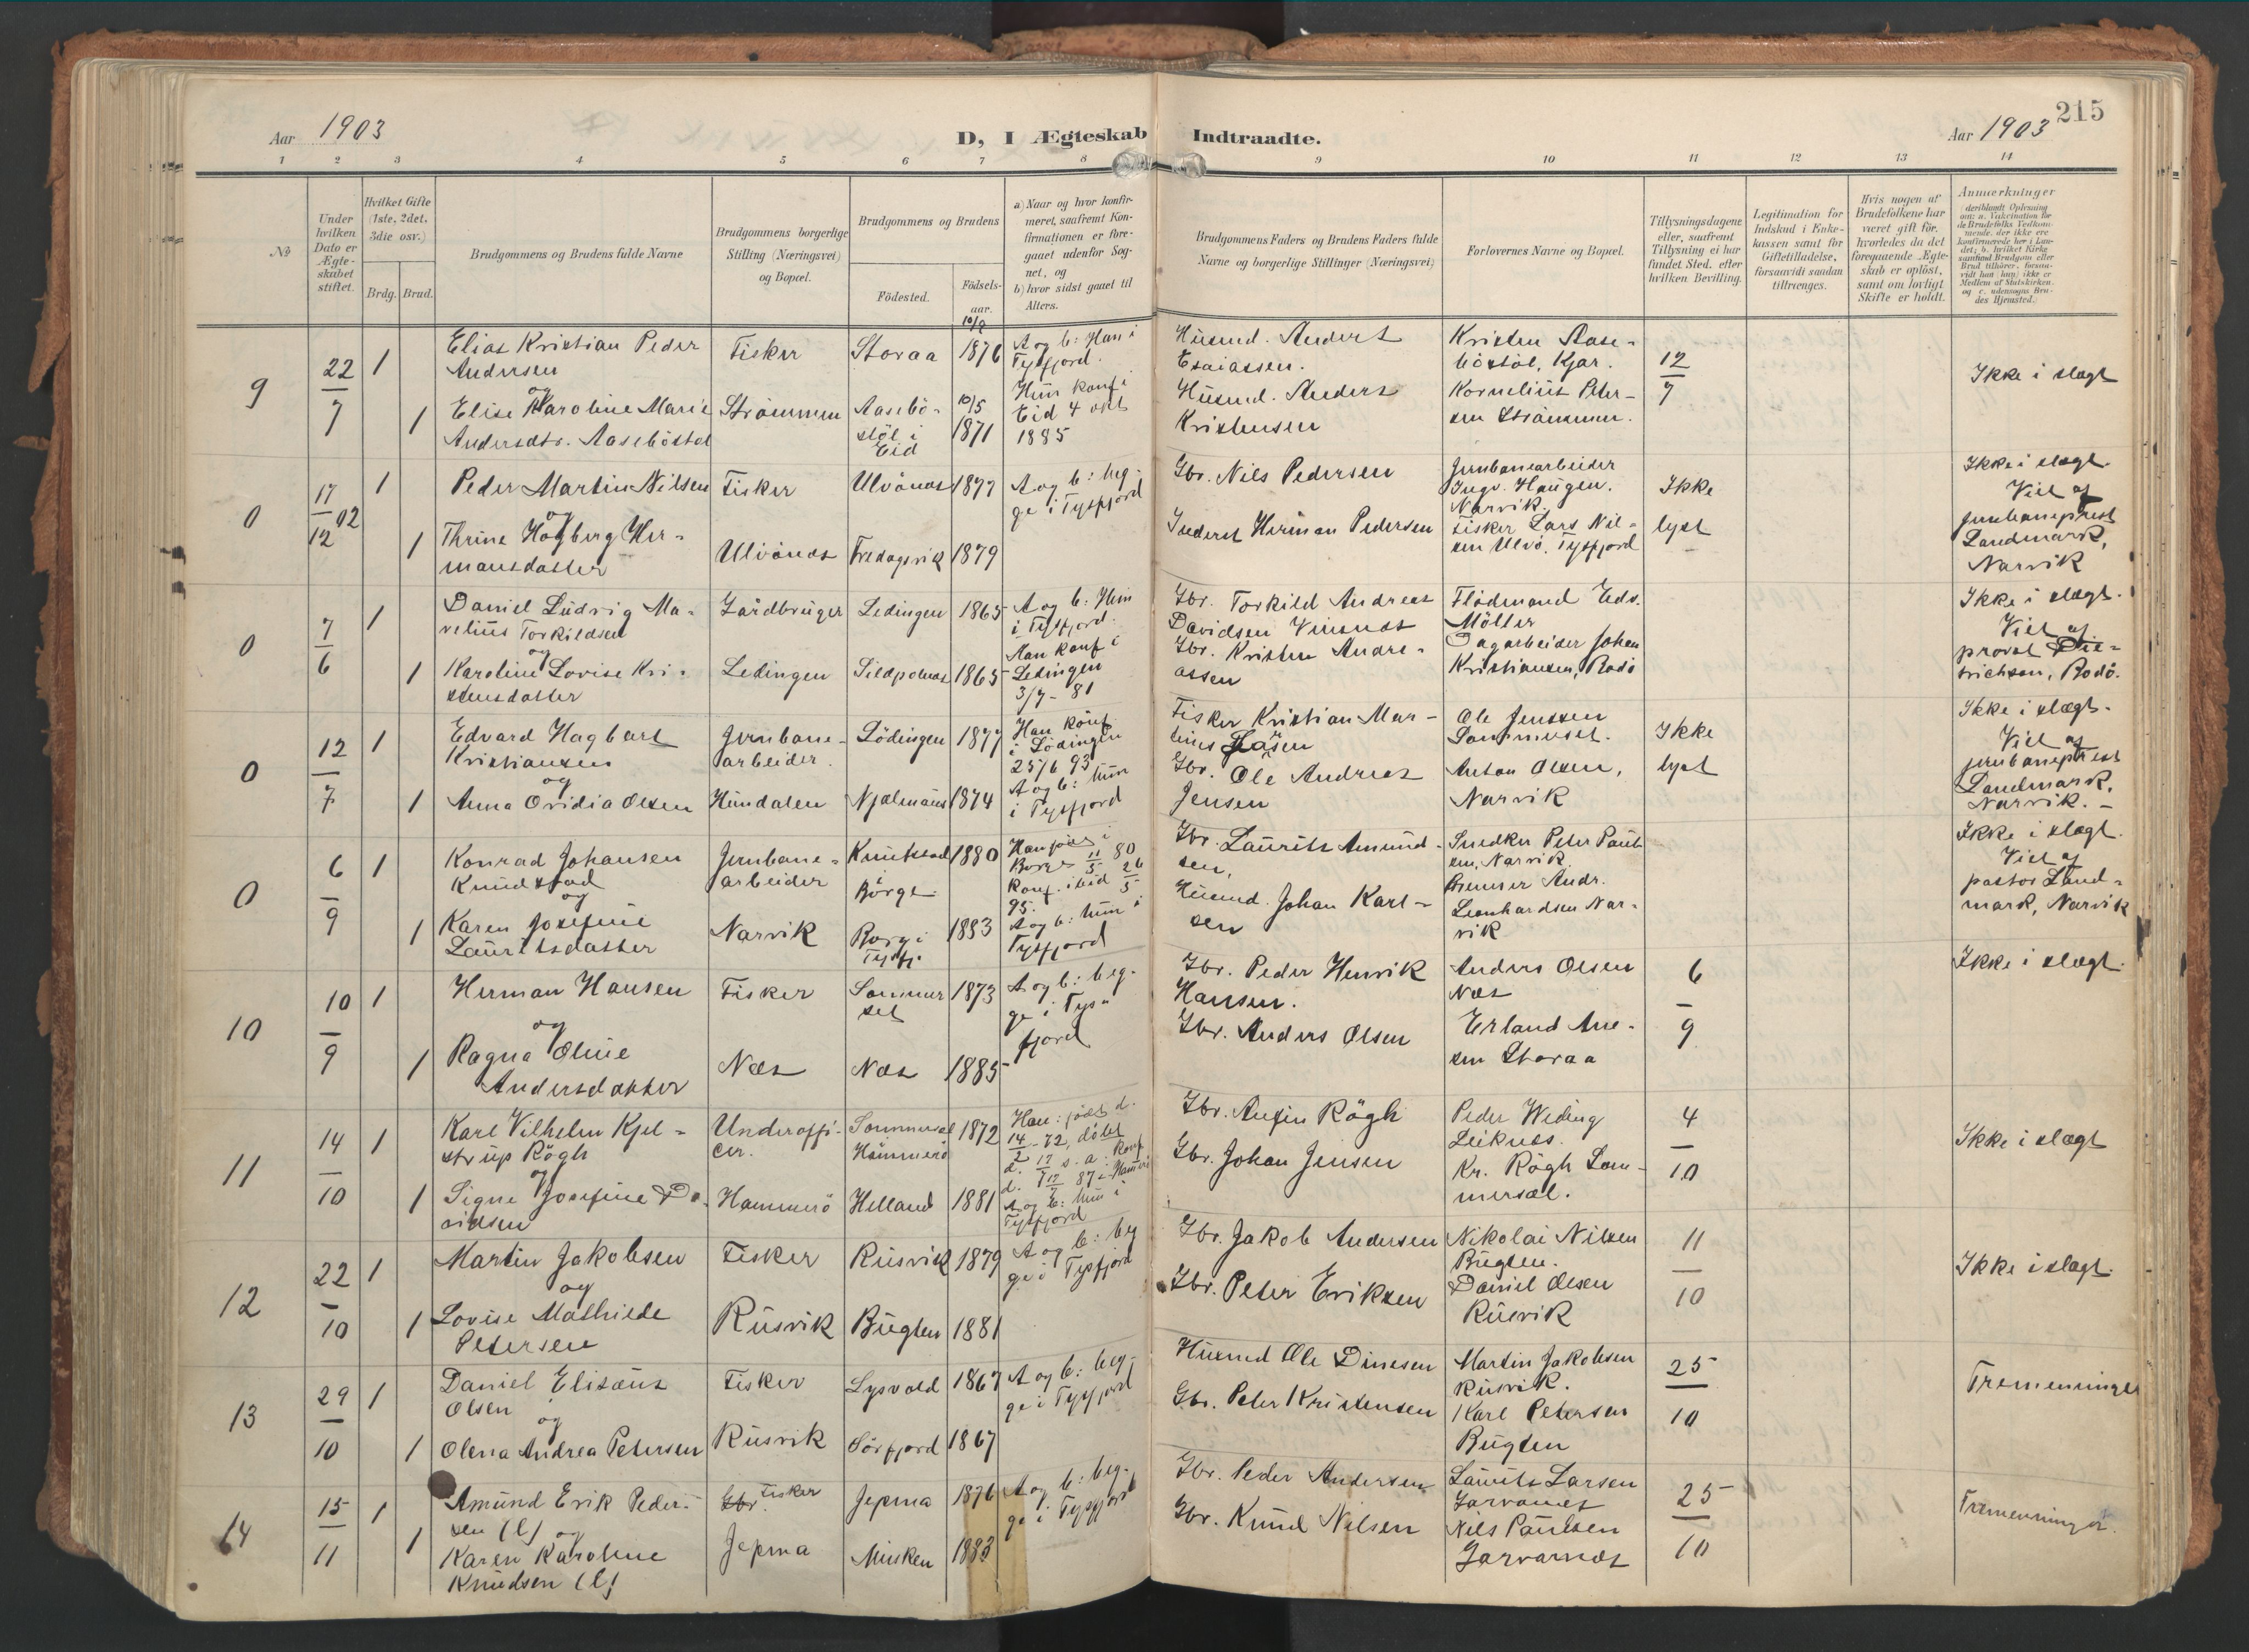 Aar 1903
D, I Ægteskab Indtraadte.
Aar 1903
215
1 2 3 4 5 6 7 8 9 10 11 12 13 14
No
Under hvilken Dato er Ægteskabet stiftet.
Hvilket Gifte (1ste, 2det, 3die osv.)
Brdg. Brud.
Brudgommens og Brudens fulde Navne
Brudgommens borgerlige Stilling (Næringsvei) og Bopæl.
Brudgommens og Brudens
Födested.
Födselsaar.
a) Naar og hvor konfirmeret, saafremt Konfirmationen er foregaaet udenfor Sognet, og
b) hvor sidst gaaet til Alters.
Brudgommens Faders og Brudens Faders fulde Navne og borgerlige Stillinger (Næringsvei)
Forlovernes Navne og Bopæl.
Tillysningsdagene eller, saafremt Tillysning ei har fundet Sted, efter hvilken Bevilling.
Legitimation for Indskud i Enkekassen samt for Giftetilladelse, forsaavidt saadan tiltrænges.
Hvis nogen af Brudefolkene har været gift før, hvorledes da det foregaaende Ægteskab er opløst, samt om lovligt Skifte er holdt.
Anmærkninger
9
22/7
1
Elias Kristian Peder
Andersen
og
1
Elise Karoline Marie
Andersdtr. Aaseböstöl
Fisker
Strömmen
Storaa
Aasebö-
stöl i
Eid
10/9
1876
10/5
1871
A og b: Han i
Tysfjord.
Hun konf i
Eid 4 okt
1885
Husmd. Anders
Esaiassen.
Husmd. Anders
Kristensen
Kristen Aase-
böstöl, Kjar.
Kornelius Peter-
sen Strömmen.
12/7
Ikke i slægt
0
17/12 02
1
Peder Martin Nilsen
og
1
Thrine Högberg Her-
mansdatter
Fisker
Ulvönæs
Ulvönæs
Fredagsvik
1877
1879
A og b: beg-
ge i Tysfjord
Gbr. Nils Pedersen
Inderst Herman Pedersen
Jernbanearbeider
Ingv. Haugen.
Narvik.
Fisker Lars Nil-
sen Ulvö, Tysfjord
Ikke
lyst
Ikke i slægt.
Viet af
jernbaneprest
Landmark,
Narvik
0
7/6
1
Daniel Ludvig Ma-
relius Torkildsen
og
1
Karoline Lovise Kri-
stensdatter
Gårdbruger
Lødingen
Lødingen
Sildpolnes
1865
1865
A og b: Hun
i Tysfjord.
Han konf i
Lødingen
3/7 - 81
Gbr. Torkild Andreas
Davidsen
Gbr. Kristen Andre-
assen
Flödmand Edv.
Möller
Dagarbeider Johan
Kristiansen, Bodö
Ikke i slægt.
Viet af
provst Die-
trichson, Bodö.
0
12/7
1
Edvard Hagbart
Kristiansen
og
1
Anna Ovidia Olsen
Jernbane-
arbeider.
Hundalen
Lödingen
1877
1874
Han konf.
i Lödingen
25/6 93
A og b: hun
i Tysfjord
Fisker Kristian Mar-
tinus
Gbr. Ole Andreas
Jensen
Ole Jenssen
Anton Olsen,
Narvik
Ikke
lyst
Ikke i slægt.
Viet af
jernbaneprest
Landmark,
Narvik. -
0
6/9
1
Konrad Johansen
Knudstad
og
1
Karen Josefine
Lauritsdatter
Jernbane-
arbeider
Narvik
Knutstad
i
Börge
Borg i
Tysfj.
1880
1883
Han född i
Borge 11/5 80
konf. ibid 26/5
95.
A og b: hun i
Tysfjord
Gbr. Laurits Amund-
sen,
Husmd. Johan Karl-
sen
Snedker Peter Paul-
sen, Narvik
Bremser Andr.
Leonhardsen Nar-
vik
Ikke i slægt.
Viet af
pastor Land-
mark, Narvik
10
10/9
1
Herman Hansen
og
1
Ragna Oline
Andersdatter
Fisker
Næs
Sommer
set
Næs
1873
1885
A og b: beg-
ge i Tys-
fjord
Gbr. Peder Henrik
Hansen.
Gbr. Anders Olsen
Anders Olsen
Næs
Erland Are-
sen Storaa
6/9
Ikke i slægt.
11
14/10
1
Karl Vilhelm Kjel-
strup Rögh
og
1
Signe Josefine Da-
vidsen
Underoffi-
cer.
Hammerö
Sommersel
Hammerö
Helland
1872
1881
Han: född d.
14/2-72, döbt
d. 17 s.a. konf
A og b: hun i
Tysfjord
Gbr. Anfin Rögh
Gbr. Johan Jensen
Peder Weding
Leiknes.
Kr. Rögh Som-
mersæl.
4/10
Ikke i slægt
12
22/10
1
Martin Jakobsen
og
1
Lovise Mathilde
Petersen
Fisker
Rusvik
Rusvik
Bugten
1879
1881
A og b: beg
ge i Tysfjord
Gbr. Jakob Andersen
Gbr. Peter Eriksen
Nikolai Nilsen
Bugten.
Daniel Olsen
Rusvik
11/10
Ikke i slægt.
13
29/10
1
Daniel Elisæus
Olsen
og
1
Olena Andrea Petersen
Fisker
Rusvik
Lysvold
Sörfjord
1867
1867
A og b: beg-
ge i Tysfjord
Husmd Ole Dinesen
Gbr. Peter Kristensen
Martin Jakobsen
Rusvik.
Karl Petersen
Bugten
25/10
Tremenninger
14
15/11
1
Amund Erik Peder-
sen (l) og
1
Karen Karoline
Knudsen (l)
Gbr. Fisker
Jepma
Jepma
Musken
1876
1883
A og b: beg-
ge i Tysfjord
Gbr. Peder Andersen
Gbr. Knud Nilsen
Laurits Larsen
Nils Paulsen
25/10
Tremenninger.